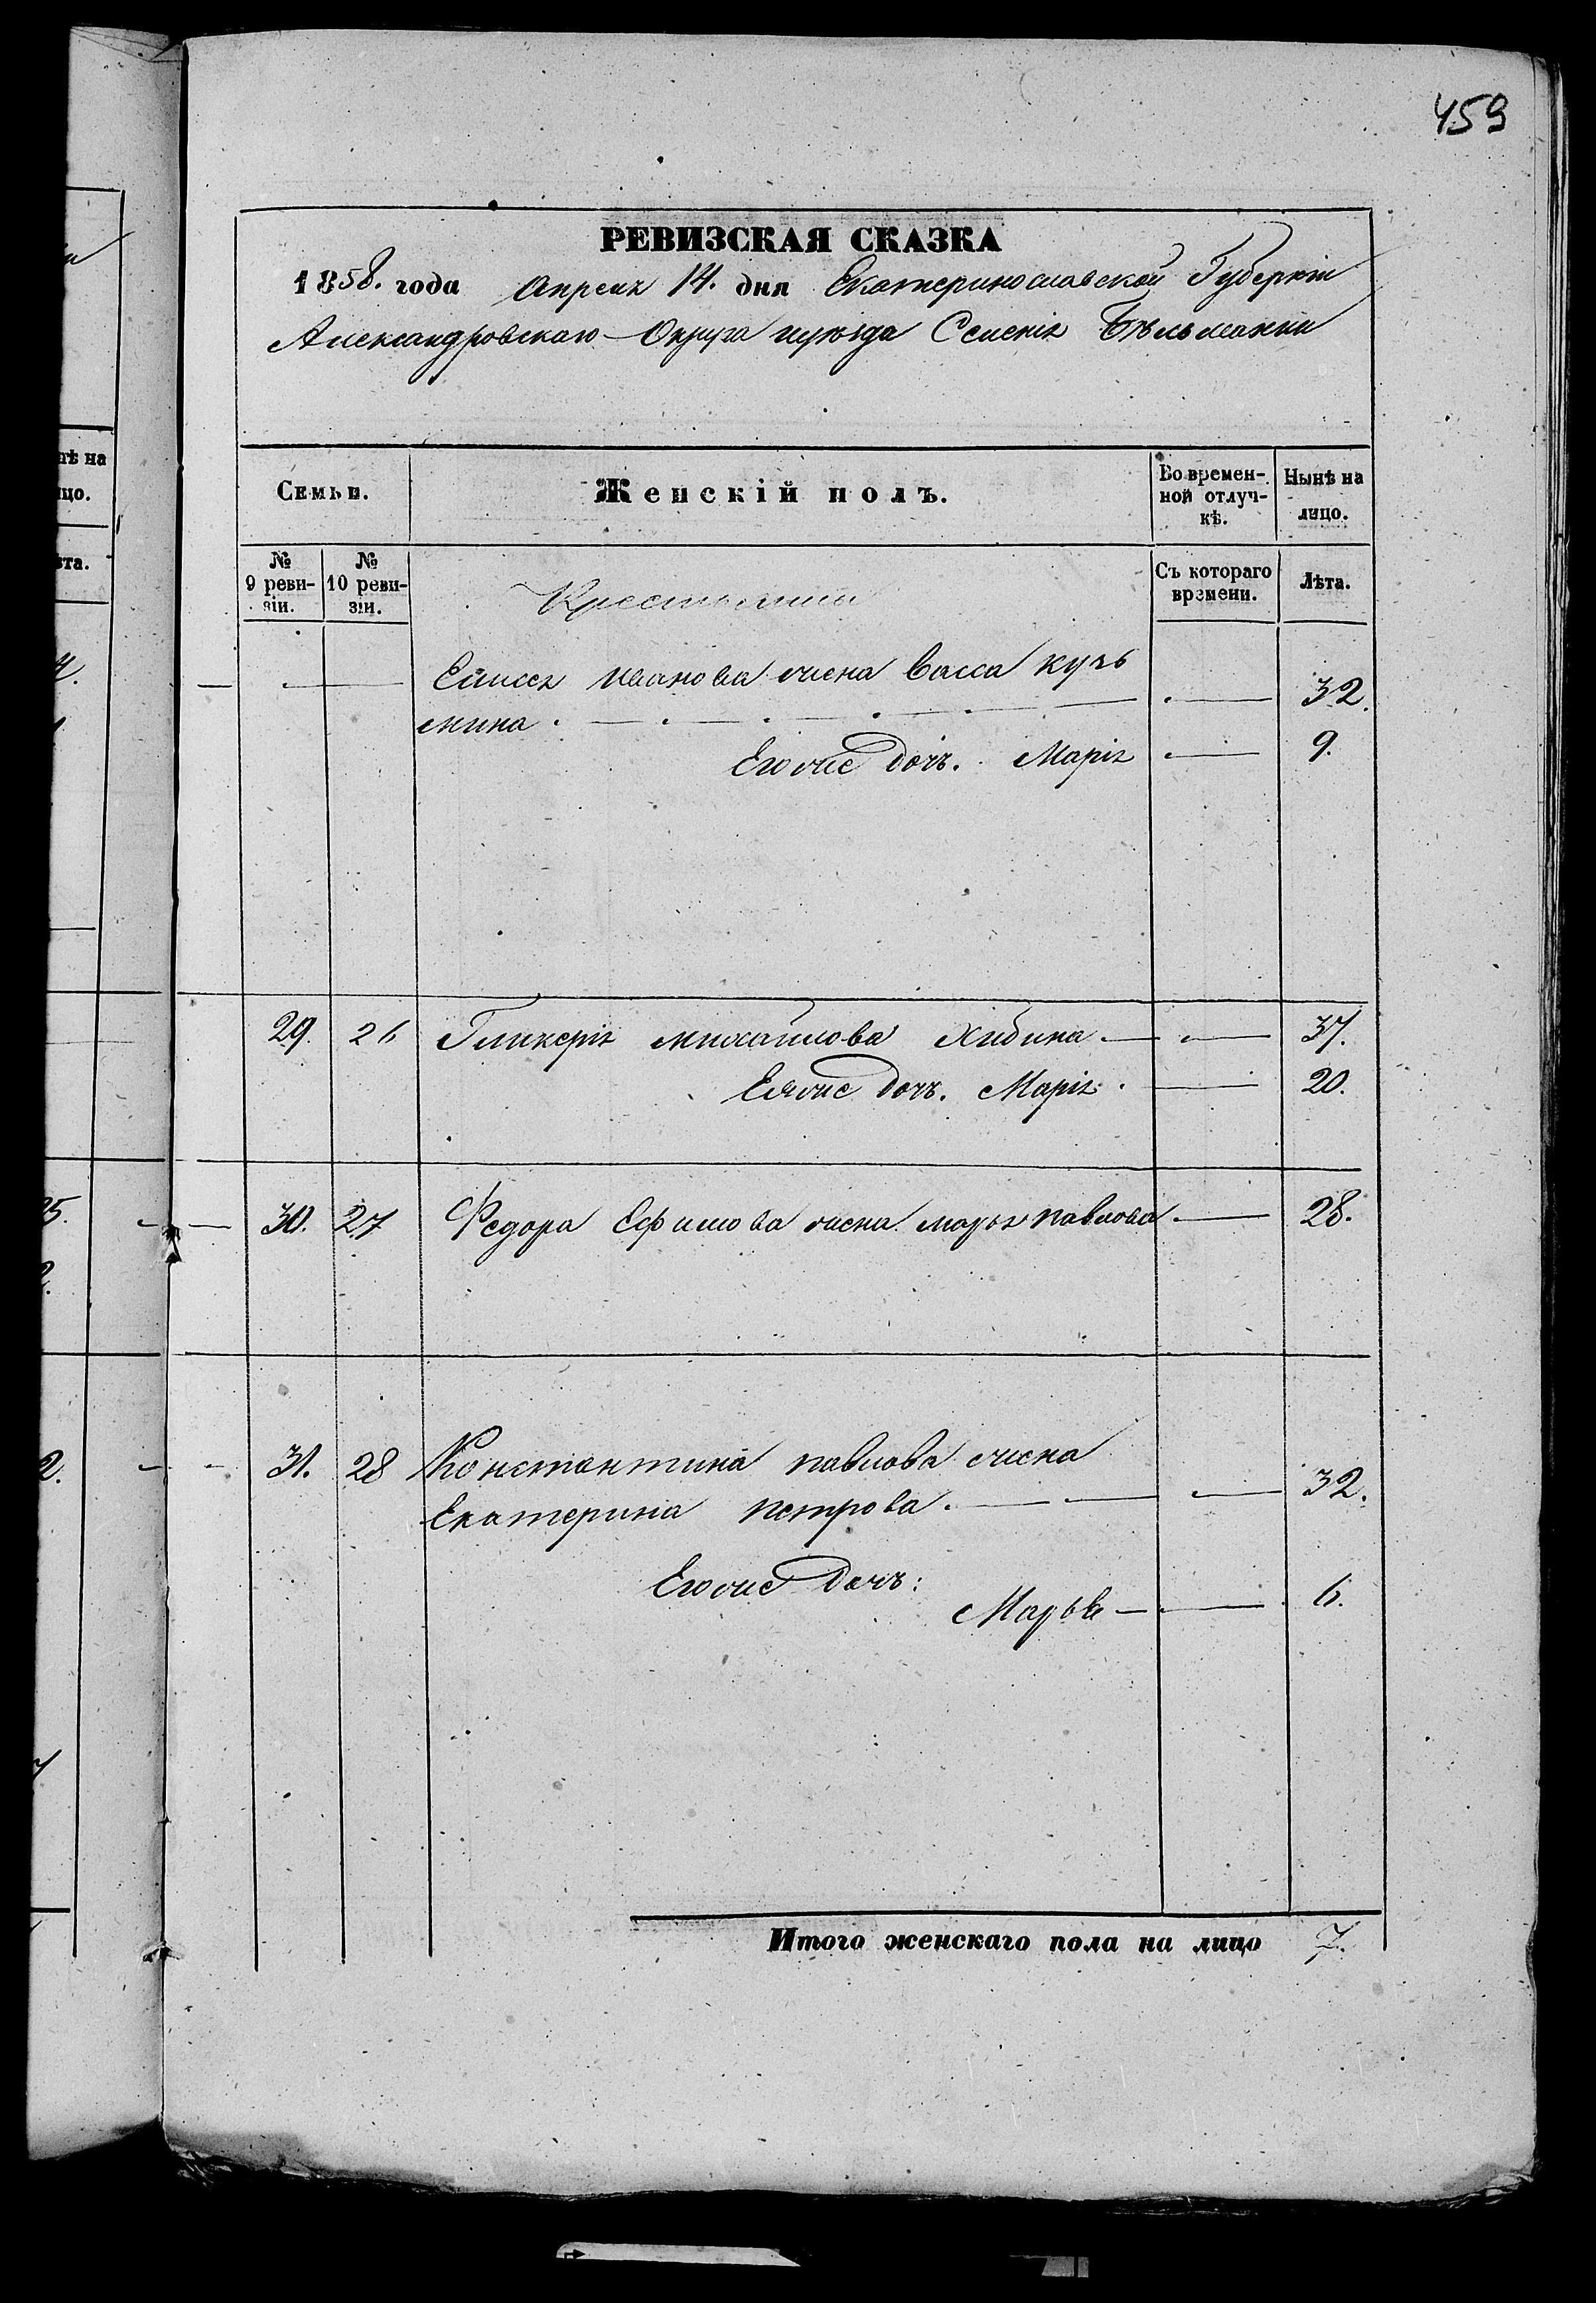 459
РЕВИЗСКАЯ СКАЗКА
1858. года Апреля 14. дня Екатеринославской Губерніи
Александровскаго Округа и уѣзда Селенія Бѣльманки
Семьи.
Женскій полъ.
Во времен-
ной отлуч-
кѣ.
Нынѣ на
лицо.
№
9 реви-
зіи.
№
10 реви-
зіи.
Крестьянин
Съ котораго
времени.
Лѣта.
Елисея Иванова жена Васса Кузь
мина. 32.
Его же дочъ. Марія 9.
29. 26 Гликерія Михайлова Хибина 37.
Ея же дочъ. Марія. 20.
30. 27 Федора Ефимова жена Марья Павлова 28.
31. 28 Константина Павлова жена
Екатерина Петрова. 32.
Его же дочъ:
Марья 6.
Итого женскаго пола на лицо 7.